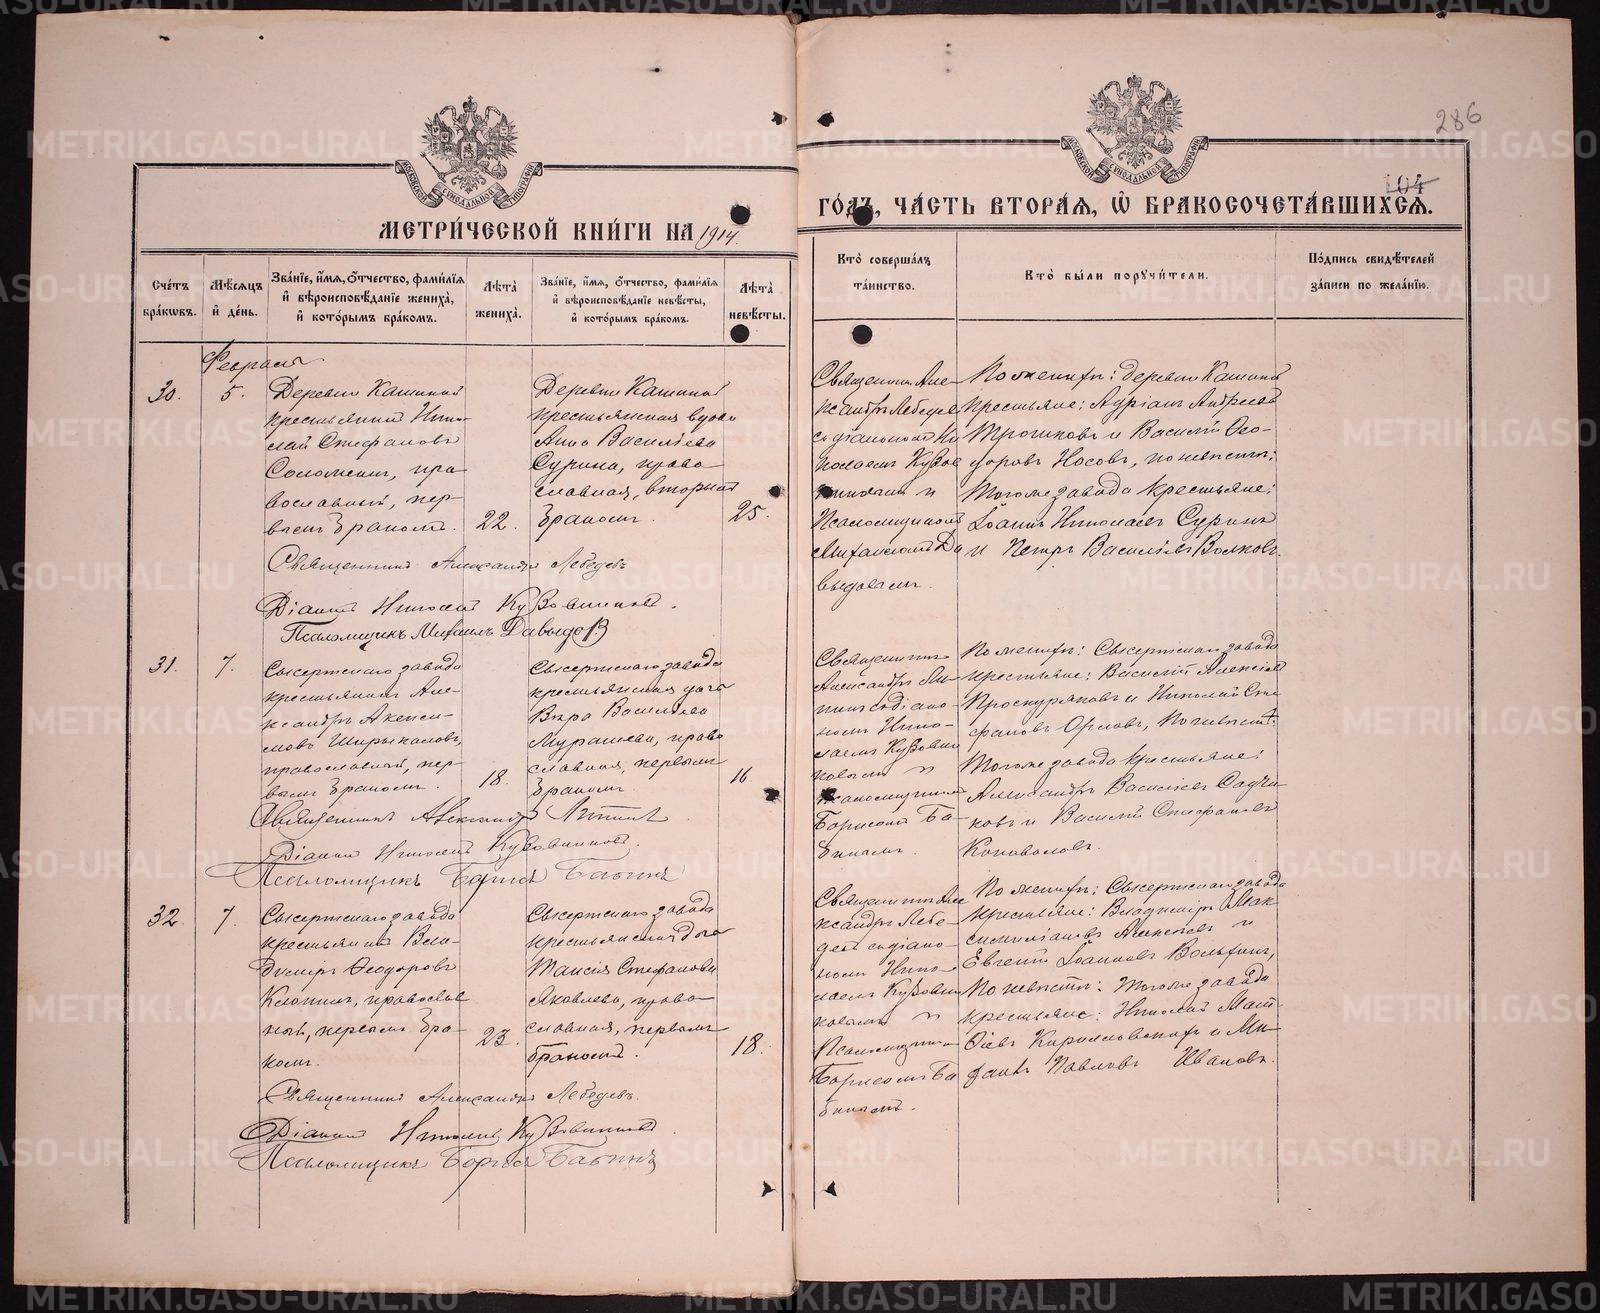 286
104
МЕТРИ́ЧЕСКОЙ КНИ́ГИ НА 1914.
ГО́ДЪ, ЧА́СТЬ ВТОРА́Я, Ѡ҆ БРАКОСОЧЕТА́ВШИХСЯ.
МОСКОВСКОЙ СѴНОДАЛЬНОЙ ТИПОГРАФІИ
МОСКОВСКОЙ СѴНОДАЛЬНОЙ ТИПОГРАФІИ
Сче́тъ бра́кѡвъ.
Мѣ́сяцъ и҆ де́нь.
Зва́нїе, и҆́мя, ѻ҆́тчество, фами́лїя и҆ вѣроисповѣ́данїе жениха̀, и҆ кото́рымъ бра́комъ.
Лѣ́та жениха̀.
Зва́нїе, и҆́мя, ѻ҆́тчество, фами́лїя и҆ вѣроисповѣ́данїе невѣ́сты, и҆ кото́рымъ бра́комъ.
Лѣ́та невѣ́сты.
Кто̀ соверша́лъ та́инство.
Кто̀ бы́ли поручи́тели.
По́дпись свидѣ́телей за́писи по жела́нїю.
Февраля
30.
5.
Деревни Кашиной
крестьянинъ Нико-
лай Стефановъ
Соломеинъ, пра-
вославный, пер-
вымъ бракомъ.
22.
Деревни Кашиной
крестьянская вдова
Анна Василіева
Сурина, право-
славная, вторымъ
бракомъ.
25.
Священникъ Але-
ксандръ Лебедев
съ діакономъ Ни
колаемъ Кузов
никовымъ и
Псаломщикомъ
Михаиломъ Да
выдовымъ.
По женихѣ: деревни Кашиной
крестьяне: Адріанъ Андреевъ
и Василій Ѳео-
доровъ Носовъ, по невѣстѣ:
Тогоже завода крестьяне:
Іоаннъ Николаевъ Суринъ
и Петръ Василіевъ Волковъ.
Священникъ Александръ Лебедевъ
Діаконъ Николай Кузовниковъ.
Псаломщикъ Михаилъ Давыдовъ
31.
7.
Сысертскаго завода
крестьянинъ Але-
ксандръ Алекси-
евъ Ширыкаловъ,
православный, пер-
вымъ бракомъ.
18.
Сысертскаго завода
крестьянская дочь
Вѣра Василіева
Мурашева, право
славная, первымъ
бракомъ.
16.
Священникъ
Александръ Ли-
пинъ съ діако-
номъ Нико-
лаемъ Кузовни
ковымъ и
псаломщикомъ
Борисомъ Ба-
бинымъ.
По женихѣ: Сысертскаго завода
крестьяне: Василій Алексіевъ
Проскуряковъ и Николай Сте
фановъ Орловъ, по невѣстѣ:
Тогоже завода крестьяне:
Александръ Василіевъ Садчи-
ковъ и Василій Стефановъ
Коноваловъ.
Священникъ Александръ
Діаконъ Николай Кузовниковъ.
Псаломщикъ Борисъ Бабинъ
32.
7.
Сысертскаго завода
крестьянинъ Вла-
димиръ Ѳеодоровъ
Клопинъ, православ
ный, первымъ бра-
комъ.
23.
Сысертскаго завода
крестьянская дочь
Таисія Стефанова
Яковлева, право-
славная, первымъ
бракомъ.
18.
Священникъ Але
ксандръ Лебе-
девъ съ діако-
номъ Нико-
лаемъ Кузовни
ковымъ и
Псаломщико
Борисомъ Ба
бинымъ.
По женихѣ: Сысертскаго завода
крестьяне: Владиміръ Мак-
симиліановъ Алексѣевъ и
Евгеній Іоанновъ
По невѣстѣ: Тогоже завода
крестьяне: Николай Мат-
ѳіевъ Кирилловскихъ и Ми-
хаилъ Павловъ Ивановъ.
Священникъ Александръ Лебедевъ.
Діаконъ Николай Кузовниковъ.
Псаломщикъ Борисъ Бабинъ
METRIKI.GASO-URAL.RU